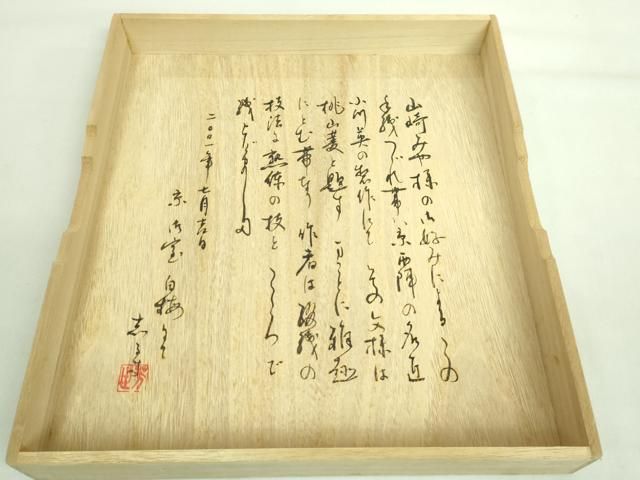 山崎みや様のお好みによるこの
手織つづれ帯は京西陣の名匠
小川英の製作にてその文様は
桃山菱と題す まことに雅趣
にとむ帯なり 作者は綴織の
技法に熟練の技とこころで
織
二〇〇一年七月吉日
京 御室 白梅